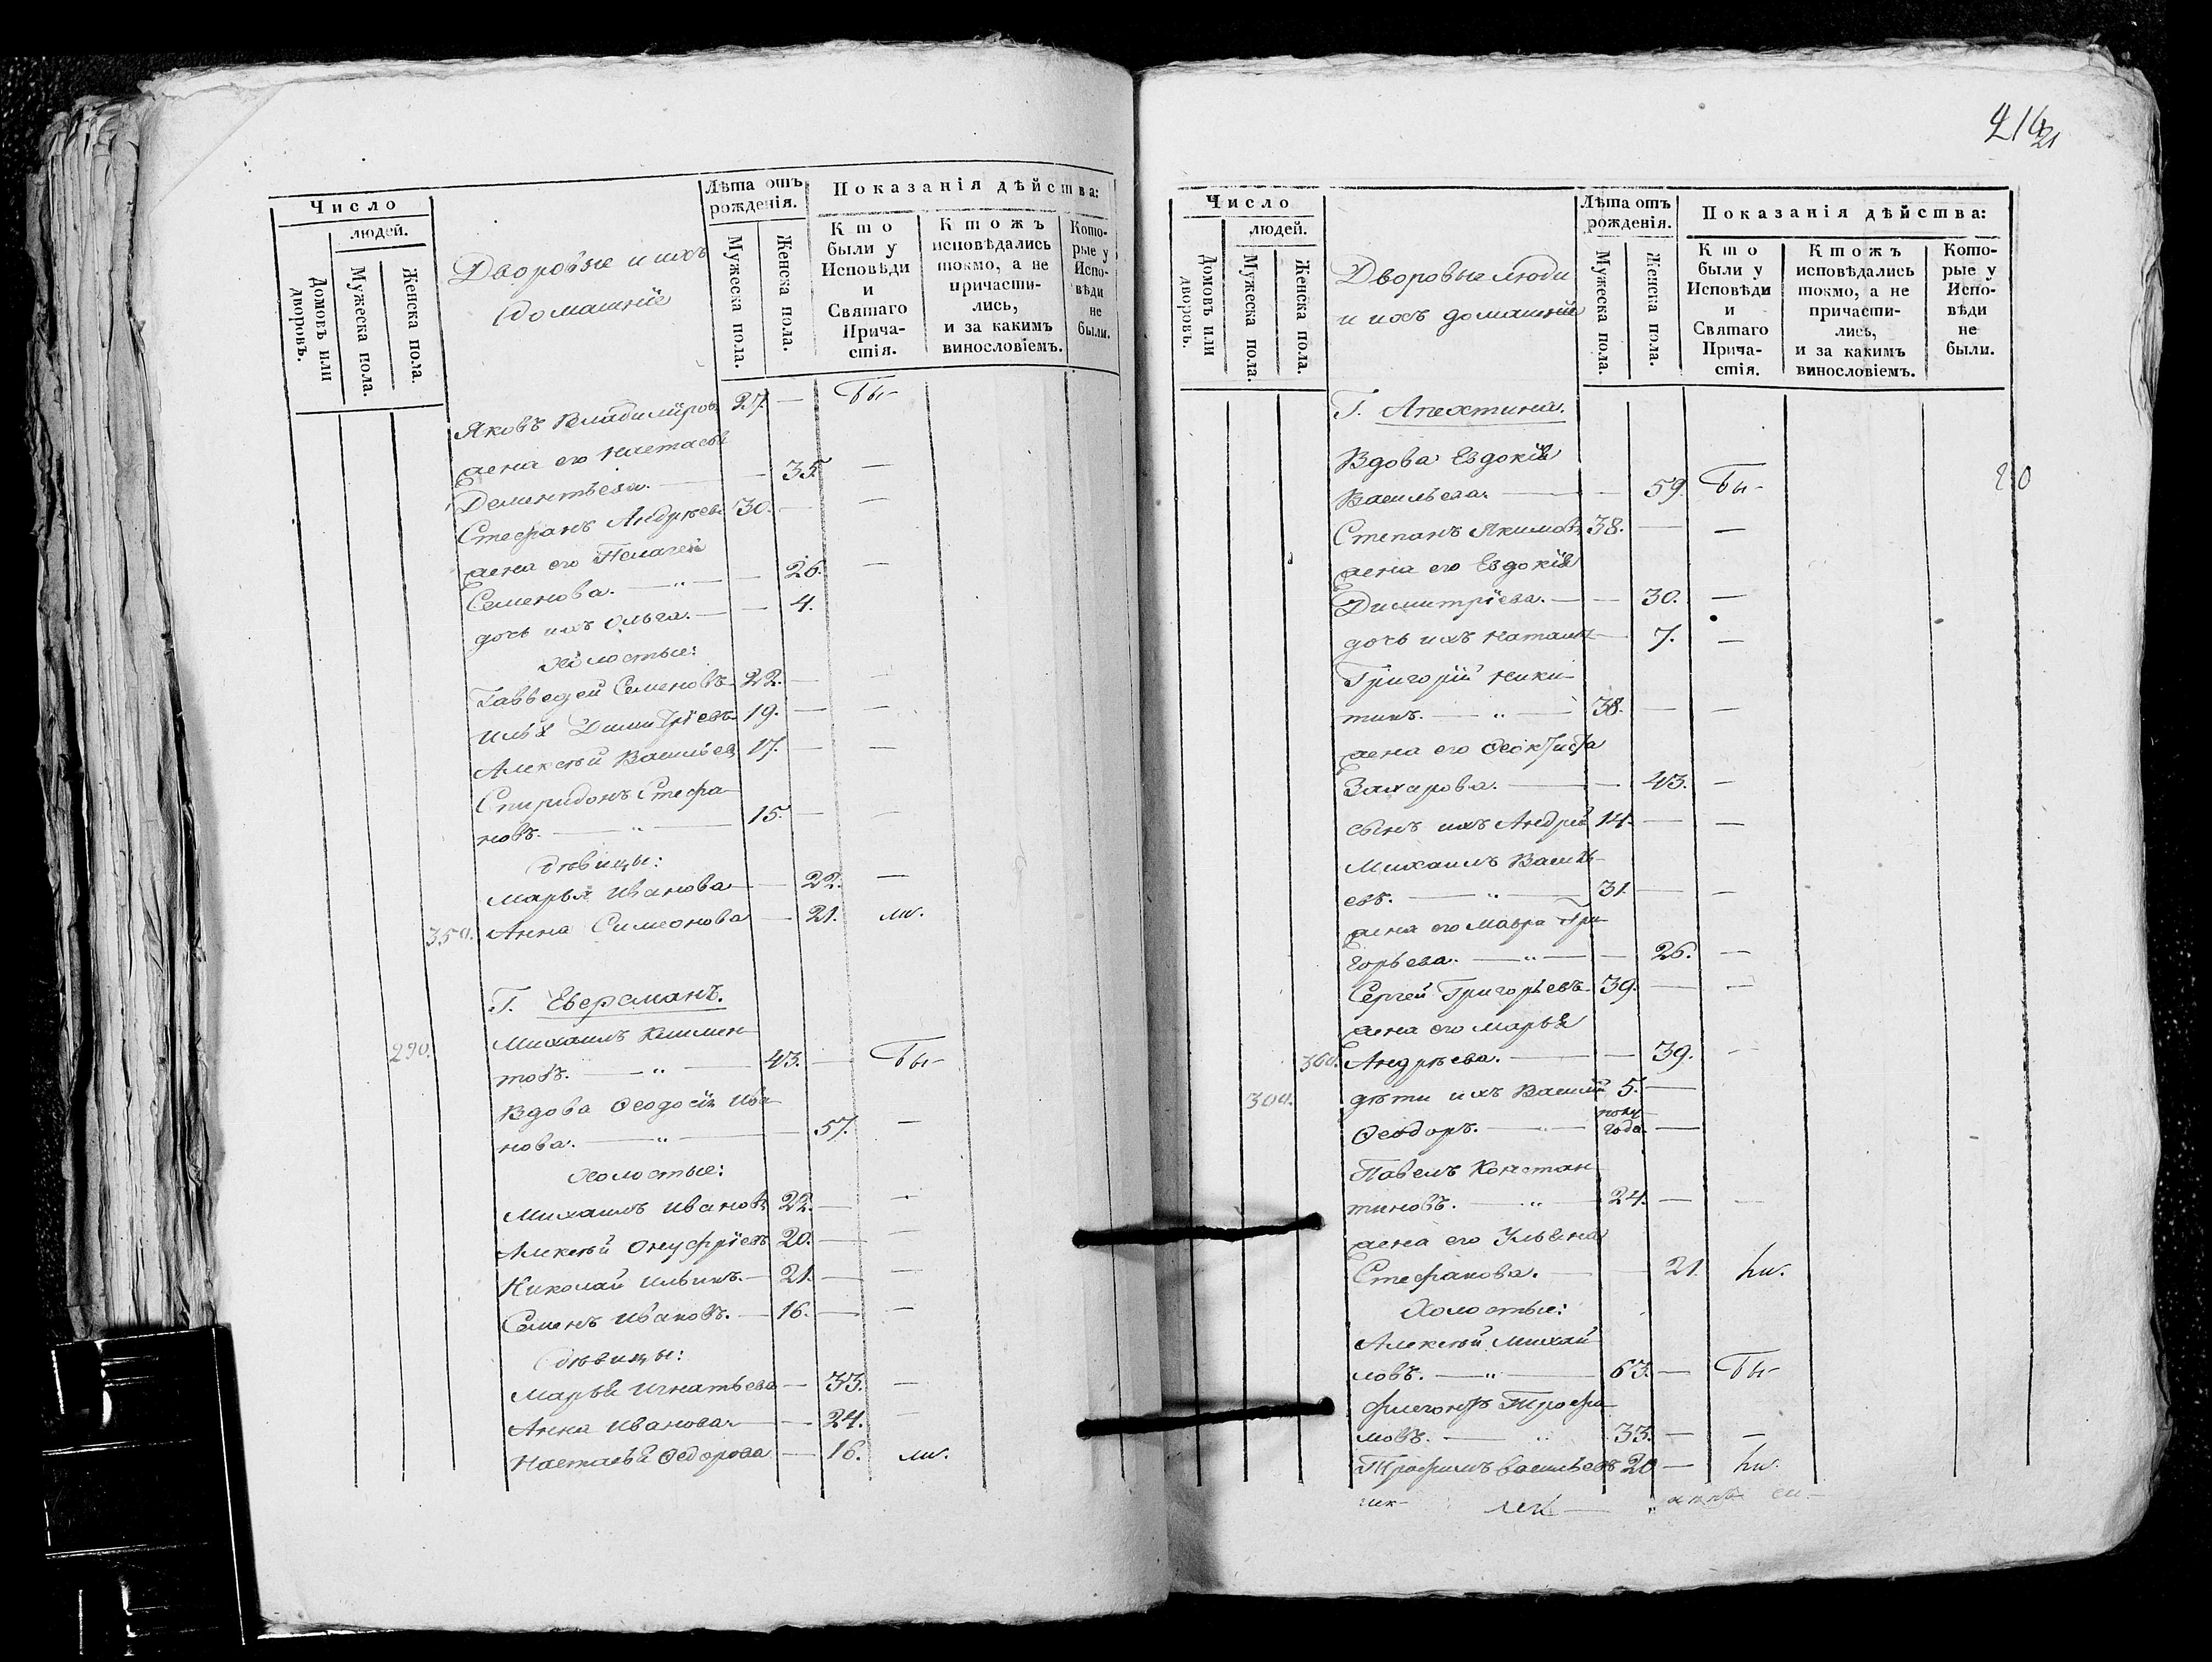 Число
людей.
Домовъ или дворовъ.
Мужеска пола.
Женска пола.
Дворовые и ихъ
домашніе
Лѣта отъ рожденія.
Мужеска пола.
Женска пола.
Показанія дѣйства:
Кто были у Исповѣди и Святаго Причастія.
Ктожъ исповѣдались токмо, а не причастились, и за какимъ винословіемъ.
Которые у Исповѣди не были.
Яковъ Владиміровъ 27. — бы-
жена его Настасья
Дементьева. — 35. —
Стефанъ Андреевъ 30. — —
жена его Пелагея
Семенова. — „ — — 26. —
дочь ихъ Ольга. — — 4.
Холостые:
Семеновъ 22. — —
Илья Димитріевъ 19. — —
Алексѣй Васильевъ 17. — —
Спиридонъ Стефа-
новъ. — „ — 15. — —
Дѣвицы:
Марья Иванова — — 22. —
350. Анна Симеонова — 21.
Г. Еверсманъ.
Михаилъ Климен-
290. товъ. — „ — 43. — Бы-
Вдова Ѳеодосія Ива-
нова. — „ — — 57. —
Холостые:
Михаилъ Ивановъ 22. — —
Алексѣй Онуфріевъ 20. — —
Николай Ильинъ. — 21. — —
Семенъ Ивановъ. — 16. — —
Дѣвицы:
Марья Игнатьева — 33. —
Анна Иванова. — — 24. —
Настасья Ѳедорова — 16.
21
Число
людей.
Домовъ или дворовъ.
Мужеска пола.
Женска пола.
Дворовые люди
и ихъ домашніе
Лѣта отъ рожденія.
Мужеска пола.
Женска пола.
Показанія дѣйства:
Кто были у Исповѣди и Святаго Причастія.
Ктожъ исповѣдались токмо, а не причастились, и за какимъ винословіемъ.
Которые у Исповѣди не были.
Г. Апехтина.
Вдова Евдокія
Васильева. — — 59. Бы-
Степанъ Якимовъ 38. — —
жена его Евдокія
Димитріева. — — 30. —
дочь ихъ Наталья — 7. —
Григорій Ники-
тинъ. — „ — 38. — —
жена его Ѳеоктиста
Захарова. — — 43. —
сынъ ихъ Андрей 14. — —
Михаилъ Василь-
евъ. — „ — 31. — —
жена его Мавра Гри-
горьева. — „ — — 26. —
Сергей Григорьевъ 39. — —
жена его Марья
360. Андреева. — — 39. —
300. дѣти ихъ Василій 5. —
Ѳеодоръ. — „ — полу года. —
Павелъ Констан-
тиновъ. — „ — 24. — —
жена его Ульяна
Стефанова. — — 21.
Холостые:
Алексѣй Михай-
ловъ. — „ — 63. — Бы-
Трофи-
мовъ. — „ 33. — —
Трофимъ Васильевъ 20 —